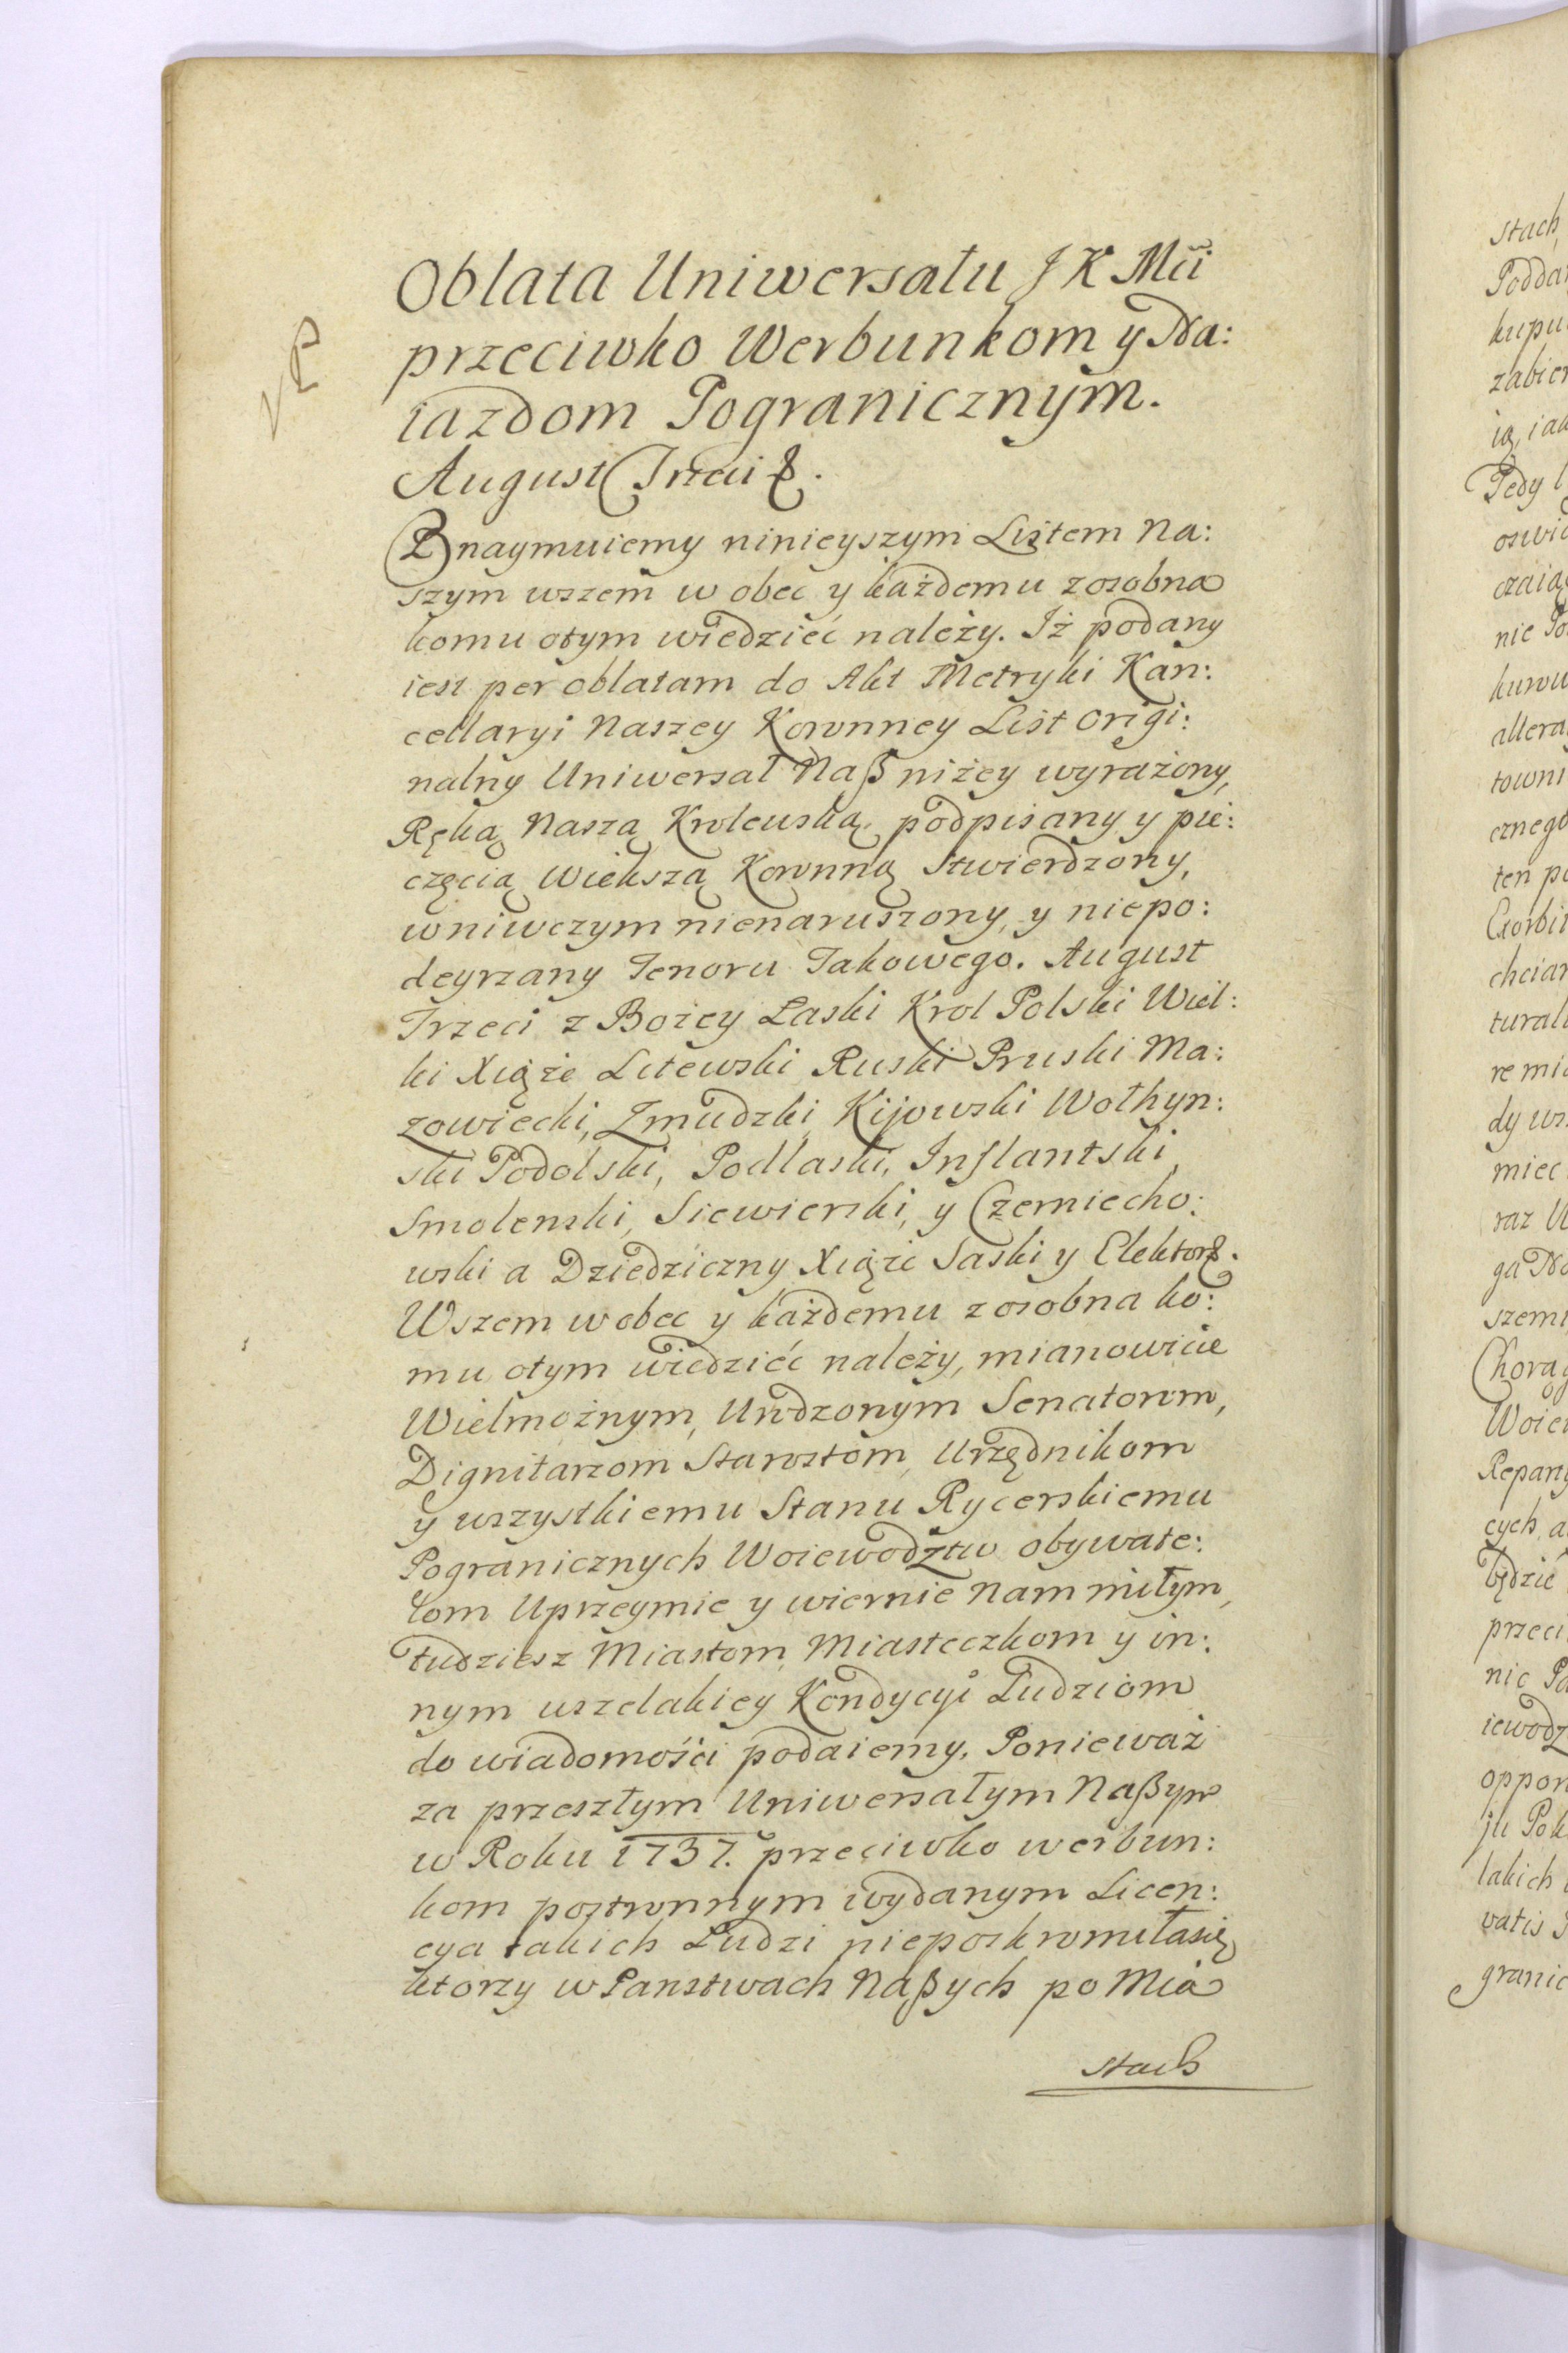 Oblata Uniwersału J K Mći
przeciwko Werbunkom y Na:
iazdom Pogranicznym.
August Trzeci &.
Oznaymuiemy ninieyszym Listem Na:
szym wszem w obec y każdemu zosobna
komu otym wiedzieć należy. Iż podany
iest per oblatam do Akt Metryki Kan:
cellaryi Naszey Koronney List origi:
nalny Uniwersał Naß niżey wyrażony,
Ręką Naszą Krolewską, podpisany y pie:
częcią Większą Koronną stwierdzony,
wniwczym nienaruszony, y niepo:
deyrzany Tenoru Takowego. August
Trzeci z Bożey Łaski Krol Polski Wiel:
ki Xiąże Litewski Ruski Pruski Ma:
zowiecki, Zmudzki, Kijowski Wołhyn:
ski Podolski, Podlaski, Inflantski,
Smolenski, Siewierski, y Czerniecho:
wski a Dziedziczny Xiąże Saski y Elektor &.
Wszem wobec y każdemu zosobna ko:
mu otym wiedzieć należy, mianowicie
Wielmożnym, Urodzonym Senatorom,
Dignitarzom Starostom, Urzędnikom
y wszystkiemu Stanu Rycerskiemu
Pogranicznych Woiewodztw obywate:
lom Uprzeymie y wiernie Nam miłym,
tudziesz Miastom, Miasteczkom y in:
nym wszelakiey Kondycyi Ludziom
do wiadomości podaiemy. Ponieważ
za przeszłym Uniwersałym Naßym
w Roku 1737. przeciwko werbun:
kom postronnym wydanym Licen:
cya takich Ludzi nieposkromiłasię
ktorzy w Panstwach Naßych po Mia
stach
stach
kupu
ten po
dy
miec
raz
Woie
cych, a
będzie
przeci
nic
lakich
vatis
granic